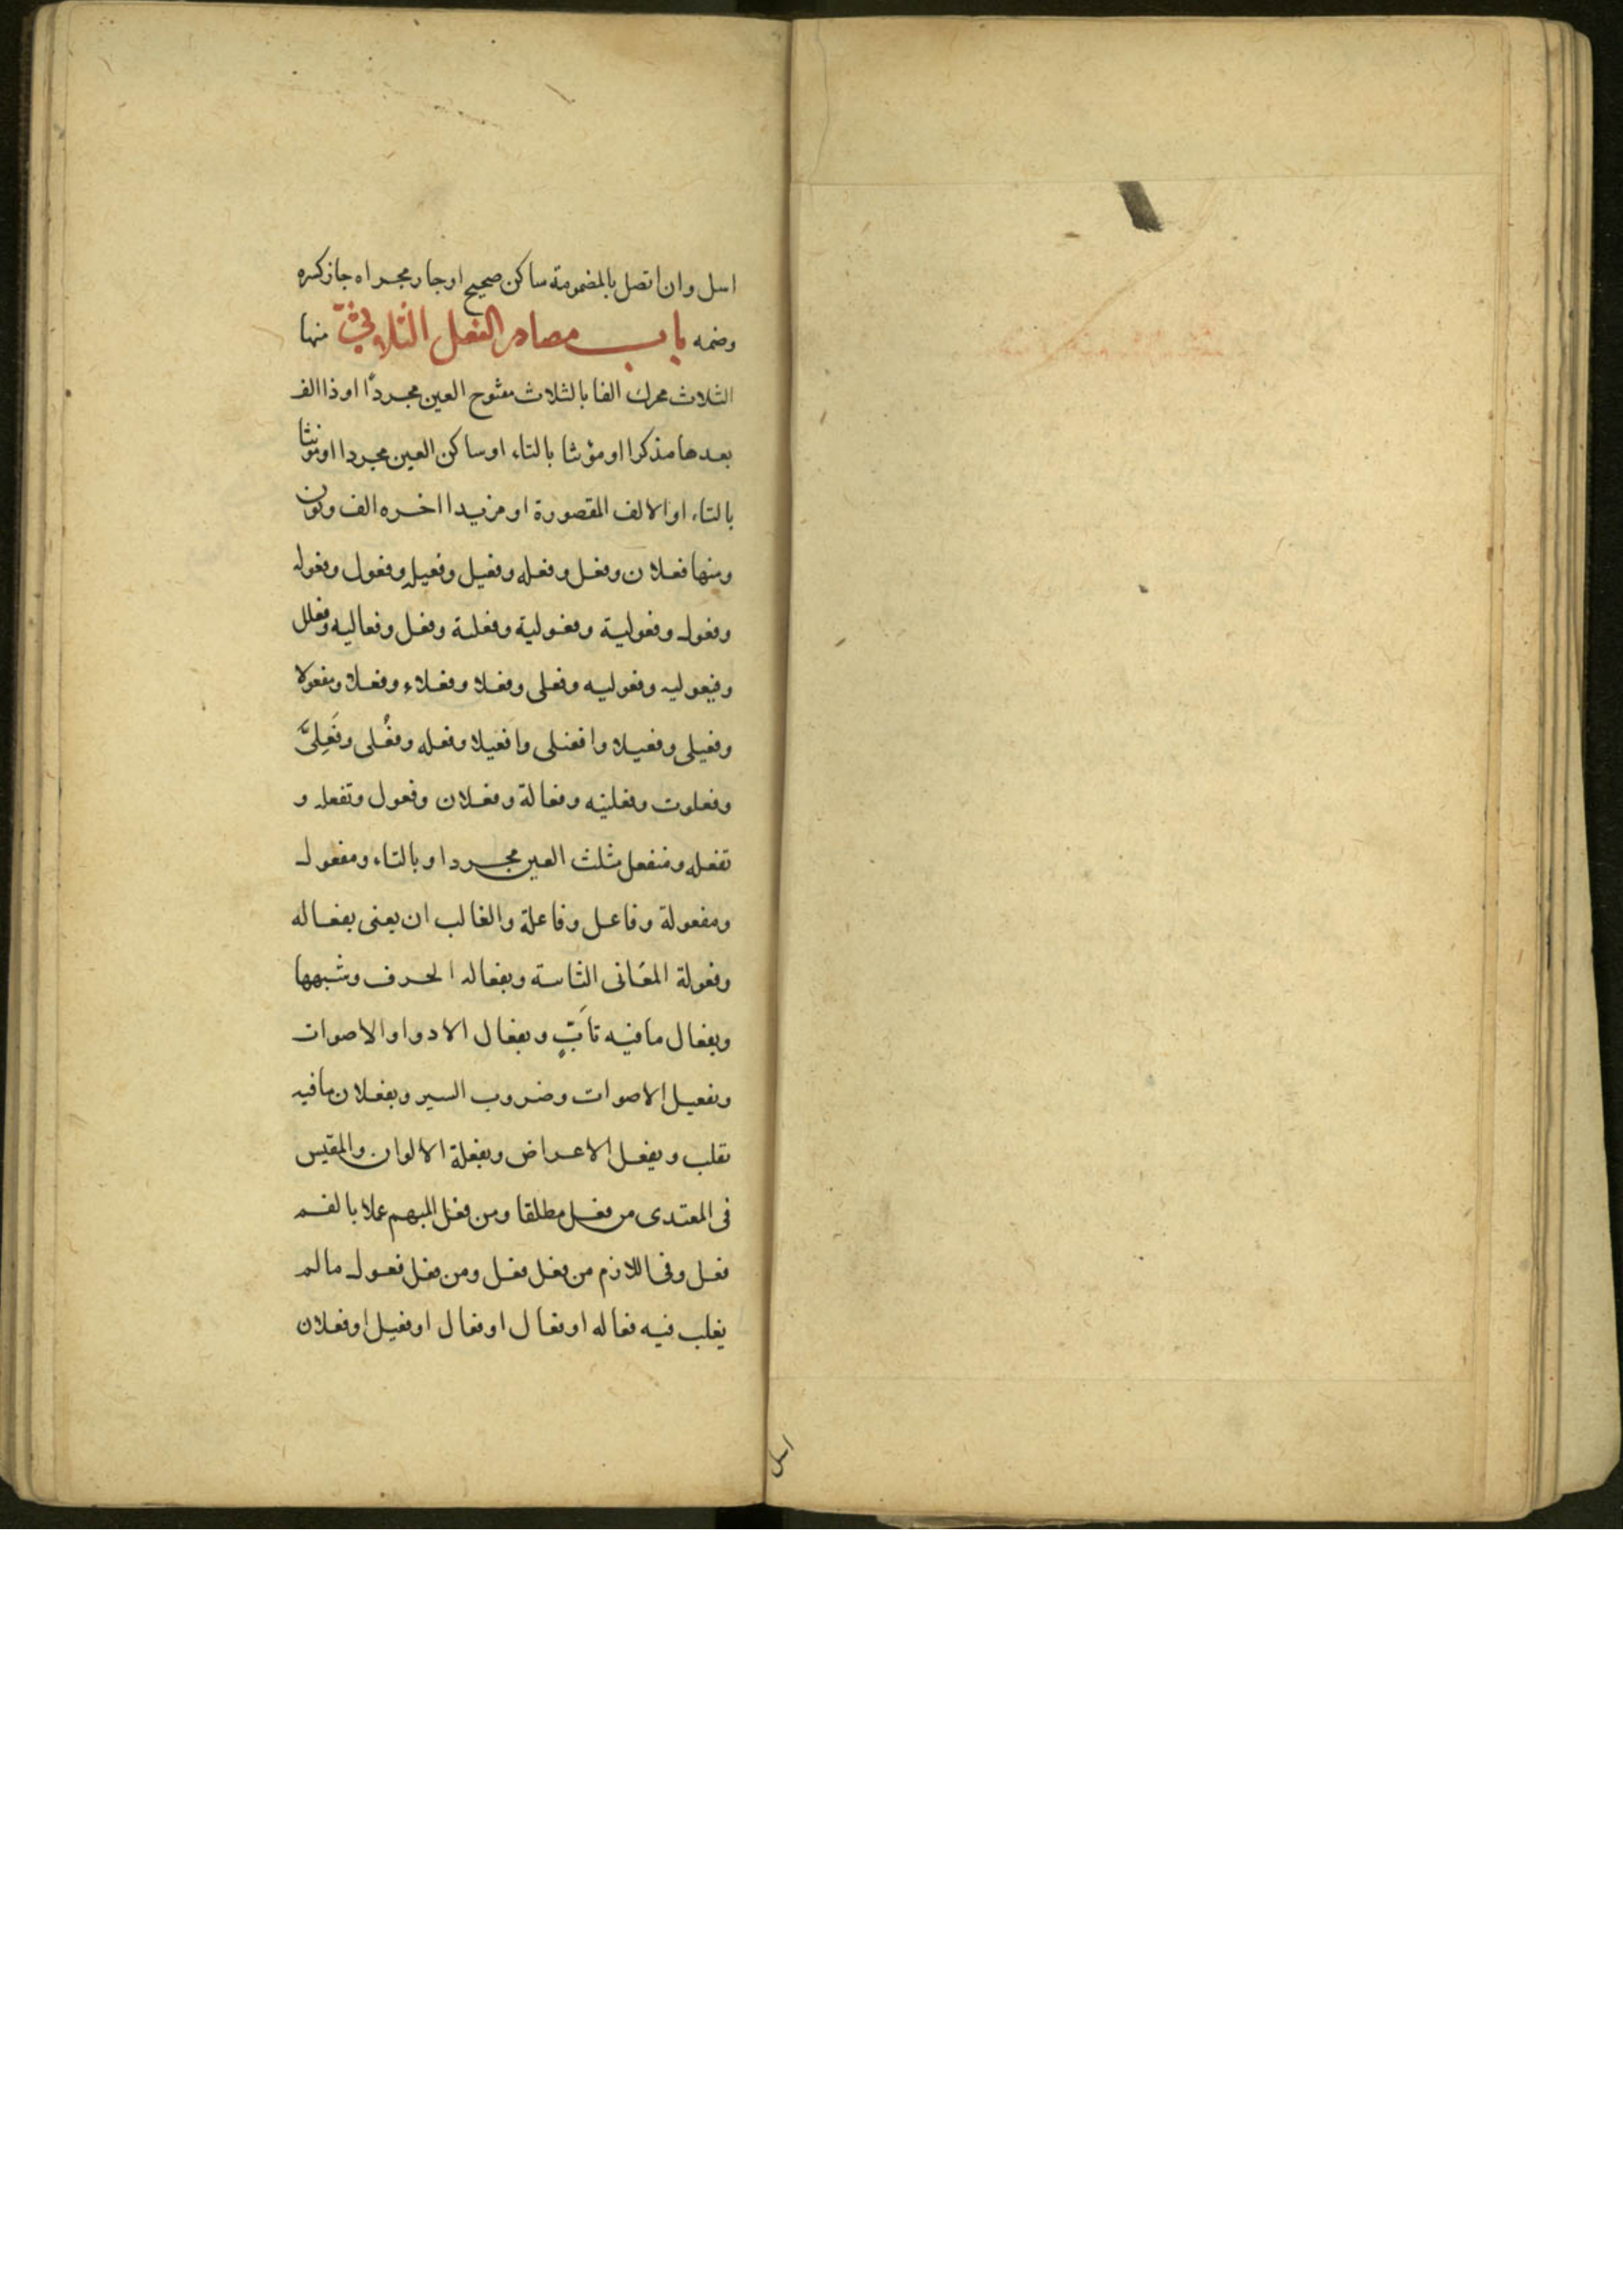 اسل وان اتصل بالمضمومة ساكن صحيح او جار مجراه جاز كسره
وضمه باب مصادر الفعل الثلاثى منها
الثلاث محرك الفا بالثلاث مفتوح العين مجردًا او ذا الف
بعدها مذكرا او مؤنثا بالتاء او ساكن العين مجردا او مؤنثا
بالتاء او الالف المقصورة او مزيدا اخره الف ونون
ومنها فعلان وفعل وفعله وفعيل وفعيله وفعول وفعوله
وفعول وفعولية وفعولية وفعلية وفعل وفعاليه وفعلل
وفيعوليه وفعوليه وفعلى وفعلا وفعلاء وفعلا ومفعولا
وفعيلى وفعيلا وافعنلى وافعيلا وفعله وفُعلى وفَعِلىَّ
وفعلوت وفعلنيه وفعالة وفعلان وفعول وتفعله و
تفعله ومنفعل مثلث العين مجردا وبالتاء ومفعول
ومفعولة وفاعل وفاعلة والغالب ان يعنى بفعاله
وفعولة المعَانى الثابتة وبفعاله الحرف وشبهها
وبفعال ما فيه تأَبٍّ وبفعال الادوا والاصوات
وبفعيل الاصوات وضروب السير وبفعلان ما فيه
تقلب وبفعل الاعراض وبفعلة الالوان والمقيس
فى المعتدى من فعل مطلقا ومن فعل المبهم عملا بالفم
فعل وفى اللازم من فعل فعل ومن فعل فعول مالم
يغلب فيه فعاله او فعال او فعال او فعيل او فعلان
اسل